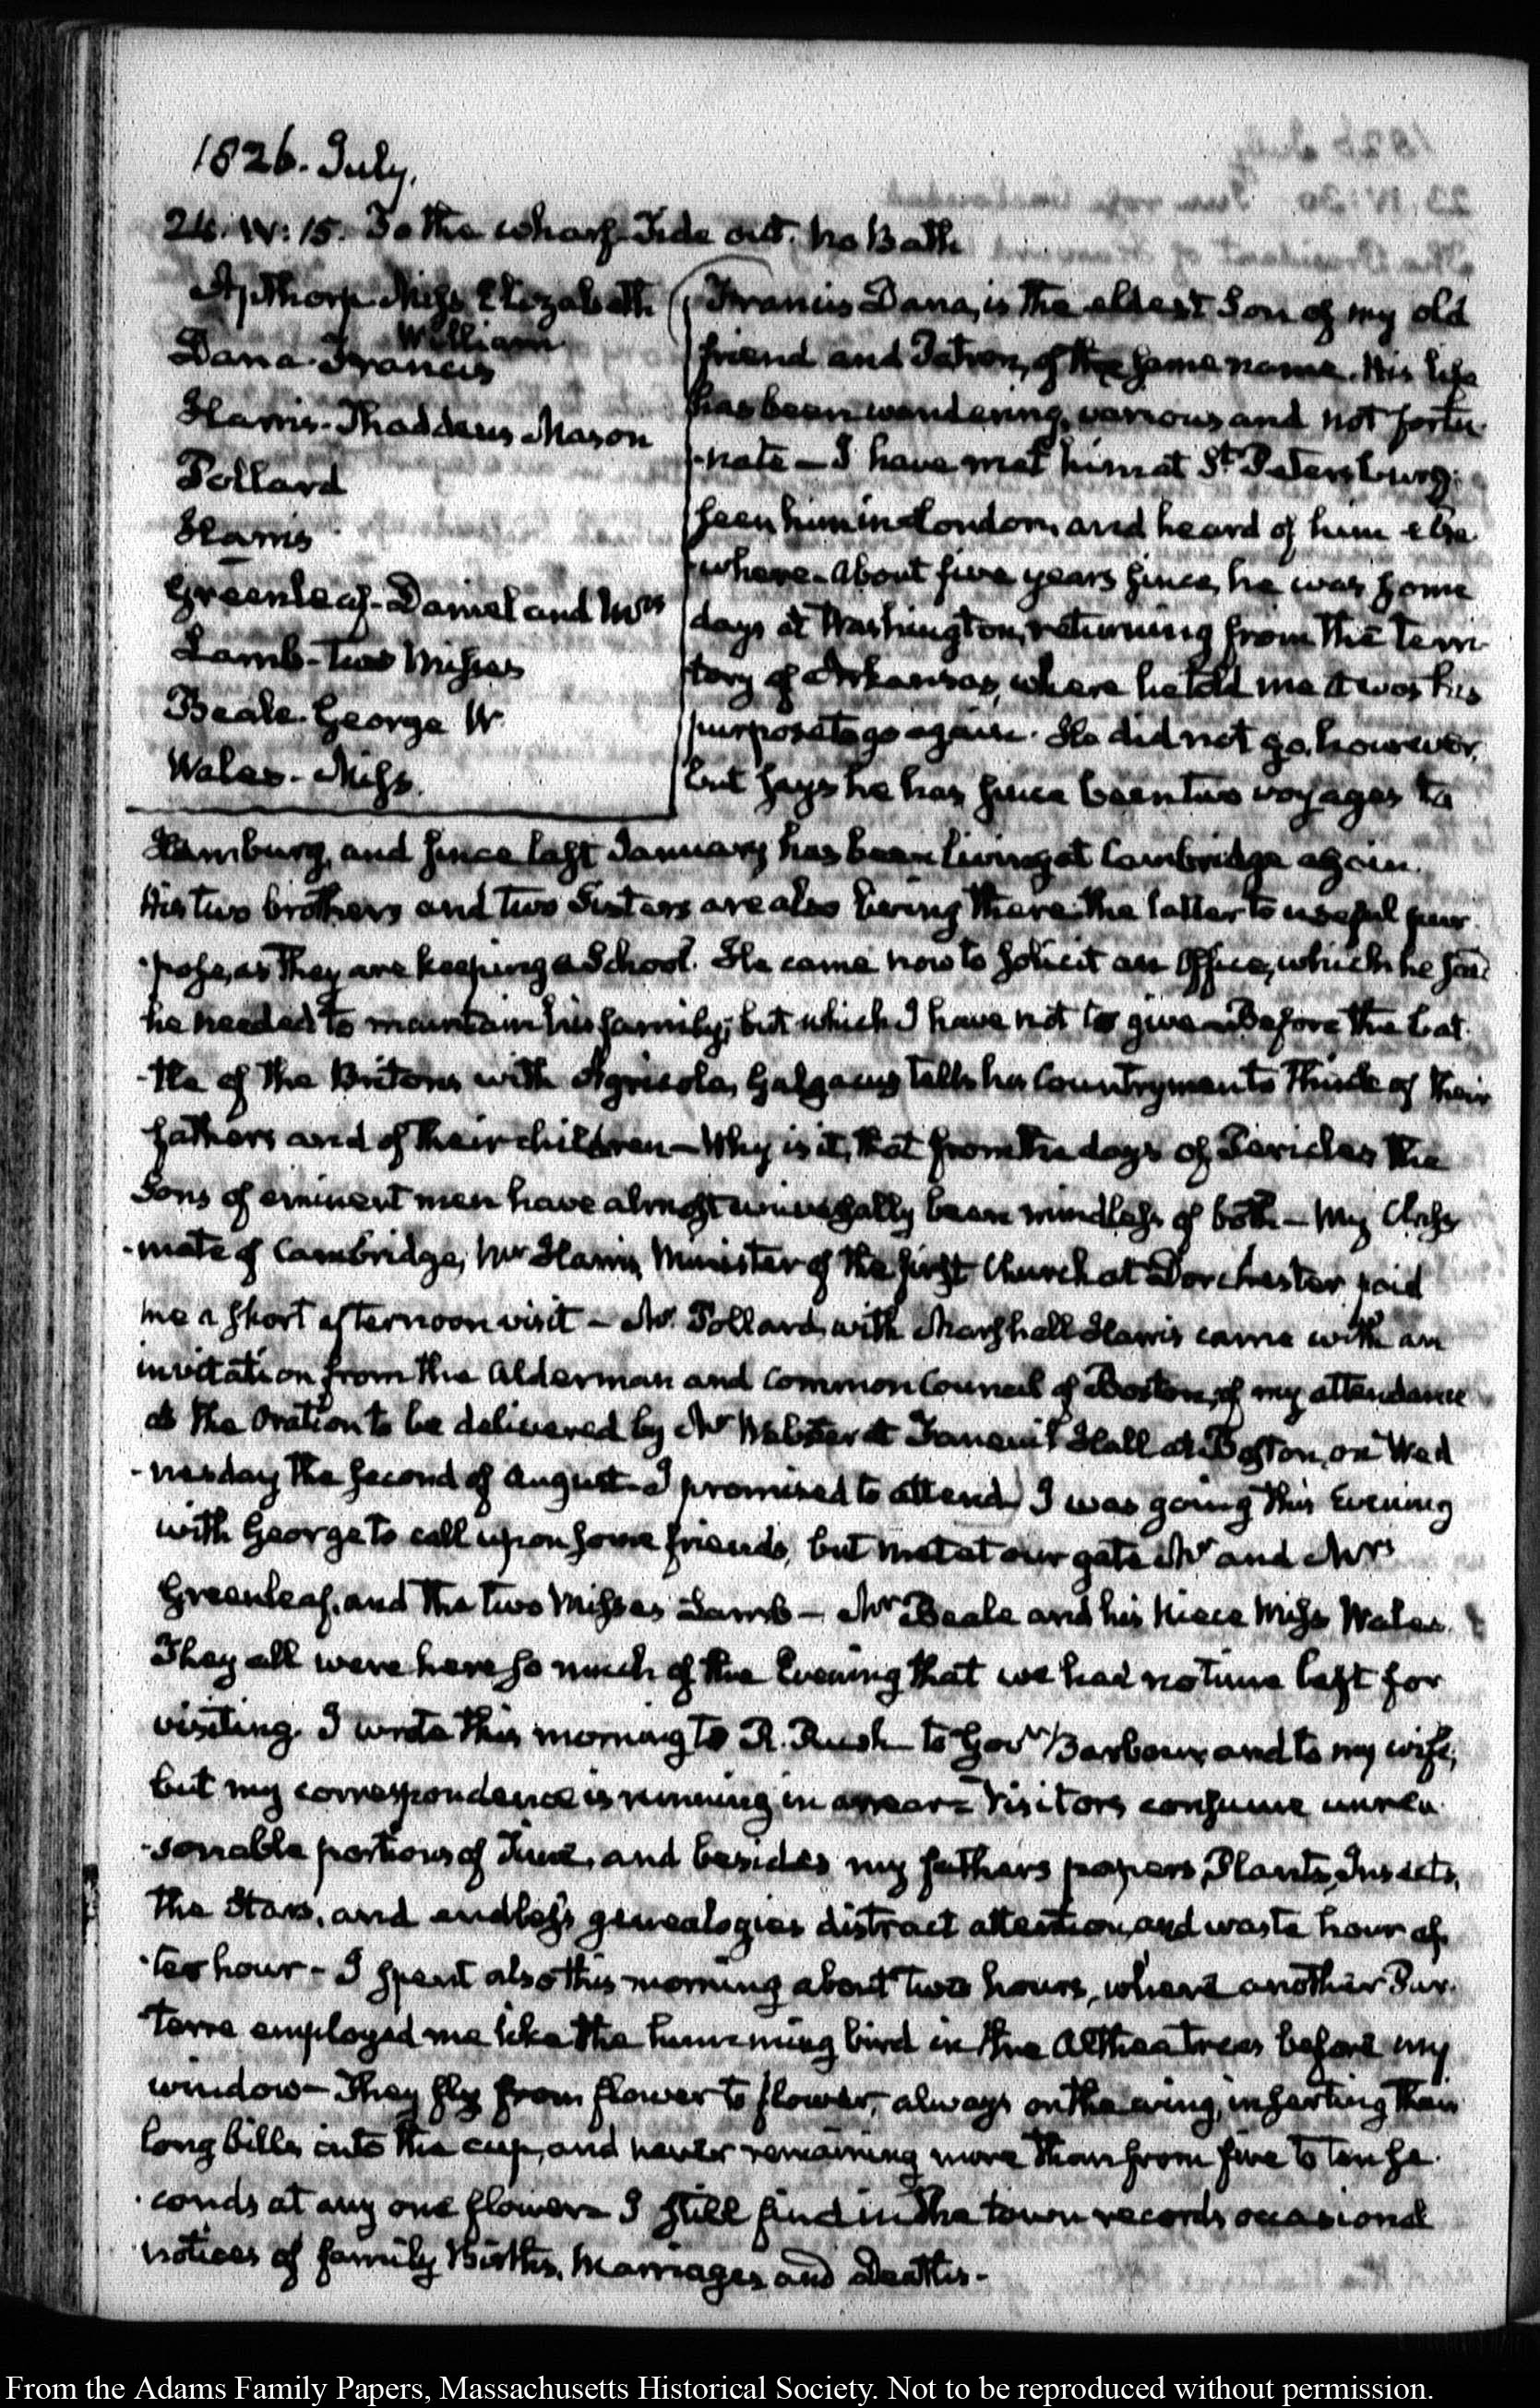 1826. July.
24. IV: 15. To the wharf. Tide out. No Bath
Apthorp Miss Elizabeth
William
Dana. Francis
Harris. Thaddeus Mason
Pollard
Harris
Greenleaf. Daniel and Mrs
Lamb. two Misses
Beale. George W.
Wales. Miss.
Francis Dana, is the eldest Son of my old
friend and Patron, of the same name. His life
has been wandering, various and not fortu-
-nate — I have met him at St. Petersburg:
seen him in London, and heard of him else
where. About five years since, he was some
days at Washington, returning from the terri-
tory of Arkansas, where he told me it was his
purpose to go again. He did not go, however,
but says he has since been two voyages to
Hamburg, and since last January has been living at Cambridge again.
His two brothers and two Sisters are also living there: the latter to useful pur-
-pose, as they are keeping a School. He came now to solicit an Office, which he said
he needed to maintain his family; but which I have not to give — Before the bat-
-tle of the Britons with Agricola, Galgacus tells his Countrymen to think of their
fathers and of their children — Why is it, that from the days of Pericles the
Sons of eminent men have almost universally been mindless of both — My Class
-mate of Cambridge, Mr Harris, Minister of the first Church at Dorchester paid
me a short afternoon visit — Mr. Pollard, with Marshall Harris came with an
invitation from the Alderman and Common Council of Boston, of my attendance
at the Oration to be delivered by Mr Webster at Faneuil Hall at Boston, on Wed
-nesday the second of August — I promised to attend) I was going this Evening
with George to call upon some friends, but met at our gate Mr and Mrs
Greenleaf, and the two Misses Lamb — Mr Beale and his Niece Miss Wales.
They all were here so much of the Evening that we had no time left for
visiting. I wrote this morning to R. Rush to Govr. Barbour, and to my wife,
but my correspondence is running in arrear — Visitors consume unrea-
-sonable portions of Time, and besides my fathers papers, Plants, Insects,
the Stars, and endless genealogies distract attention, and waste hour af-
-ter hour — I spent also this morning about two hours, where another Par-
-terre employed me like the humming bird in the Althea trees before my
window — They fly from flower to flower, always on the wing, inserting their
long bills into the cup, and never remaining more than from five to ten se-
-conds at any one flower — I still find in the town records occasional
notices of family Births, Marriages, and Deaths.—
From the Adams Family Papers, Massachusetts Historical Society. Not to be reproduced without permission.